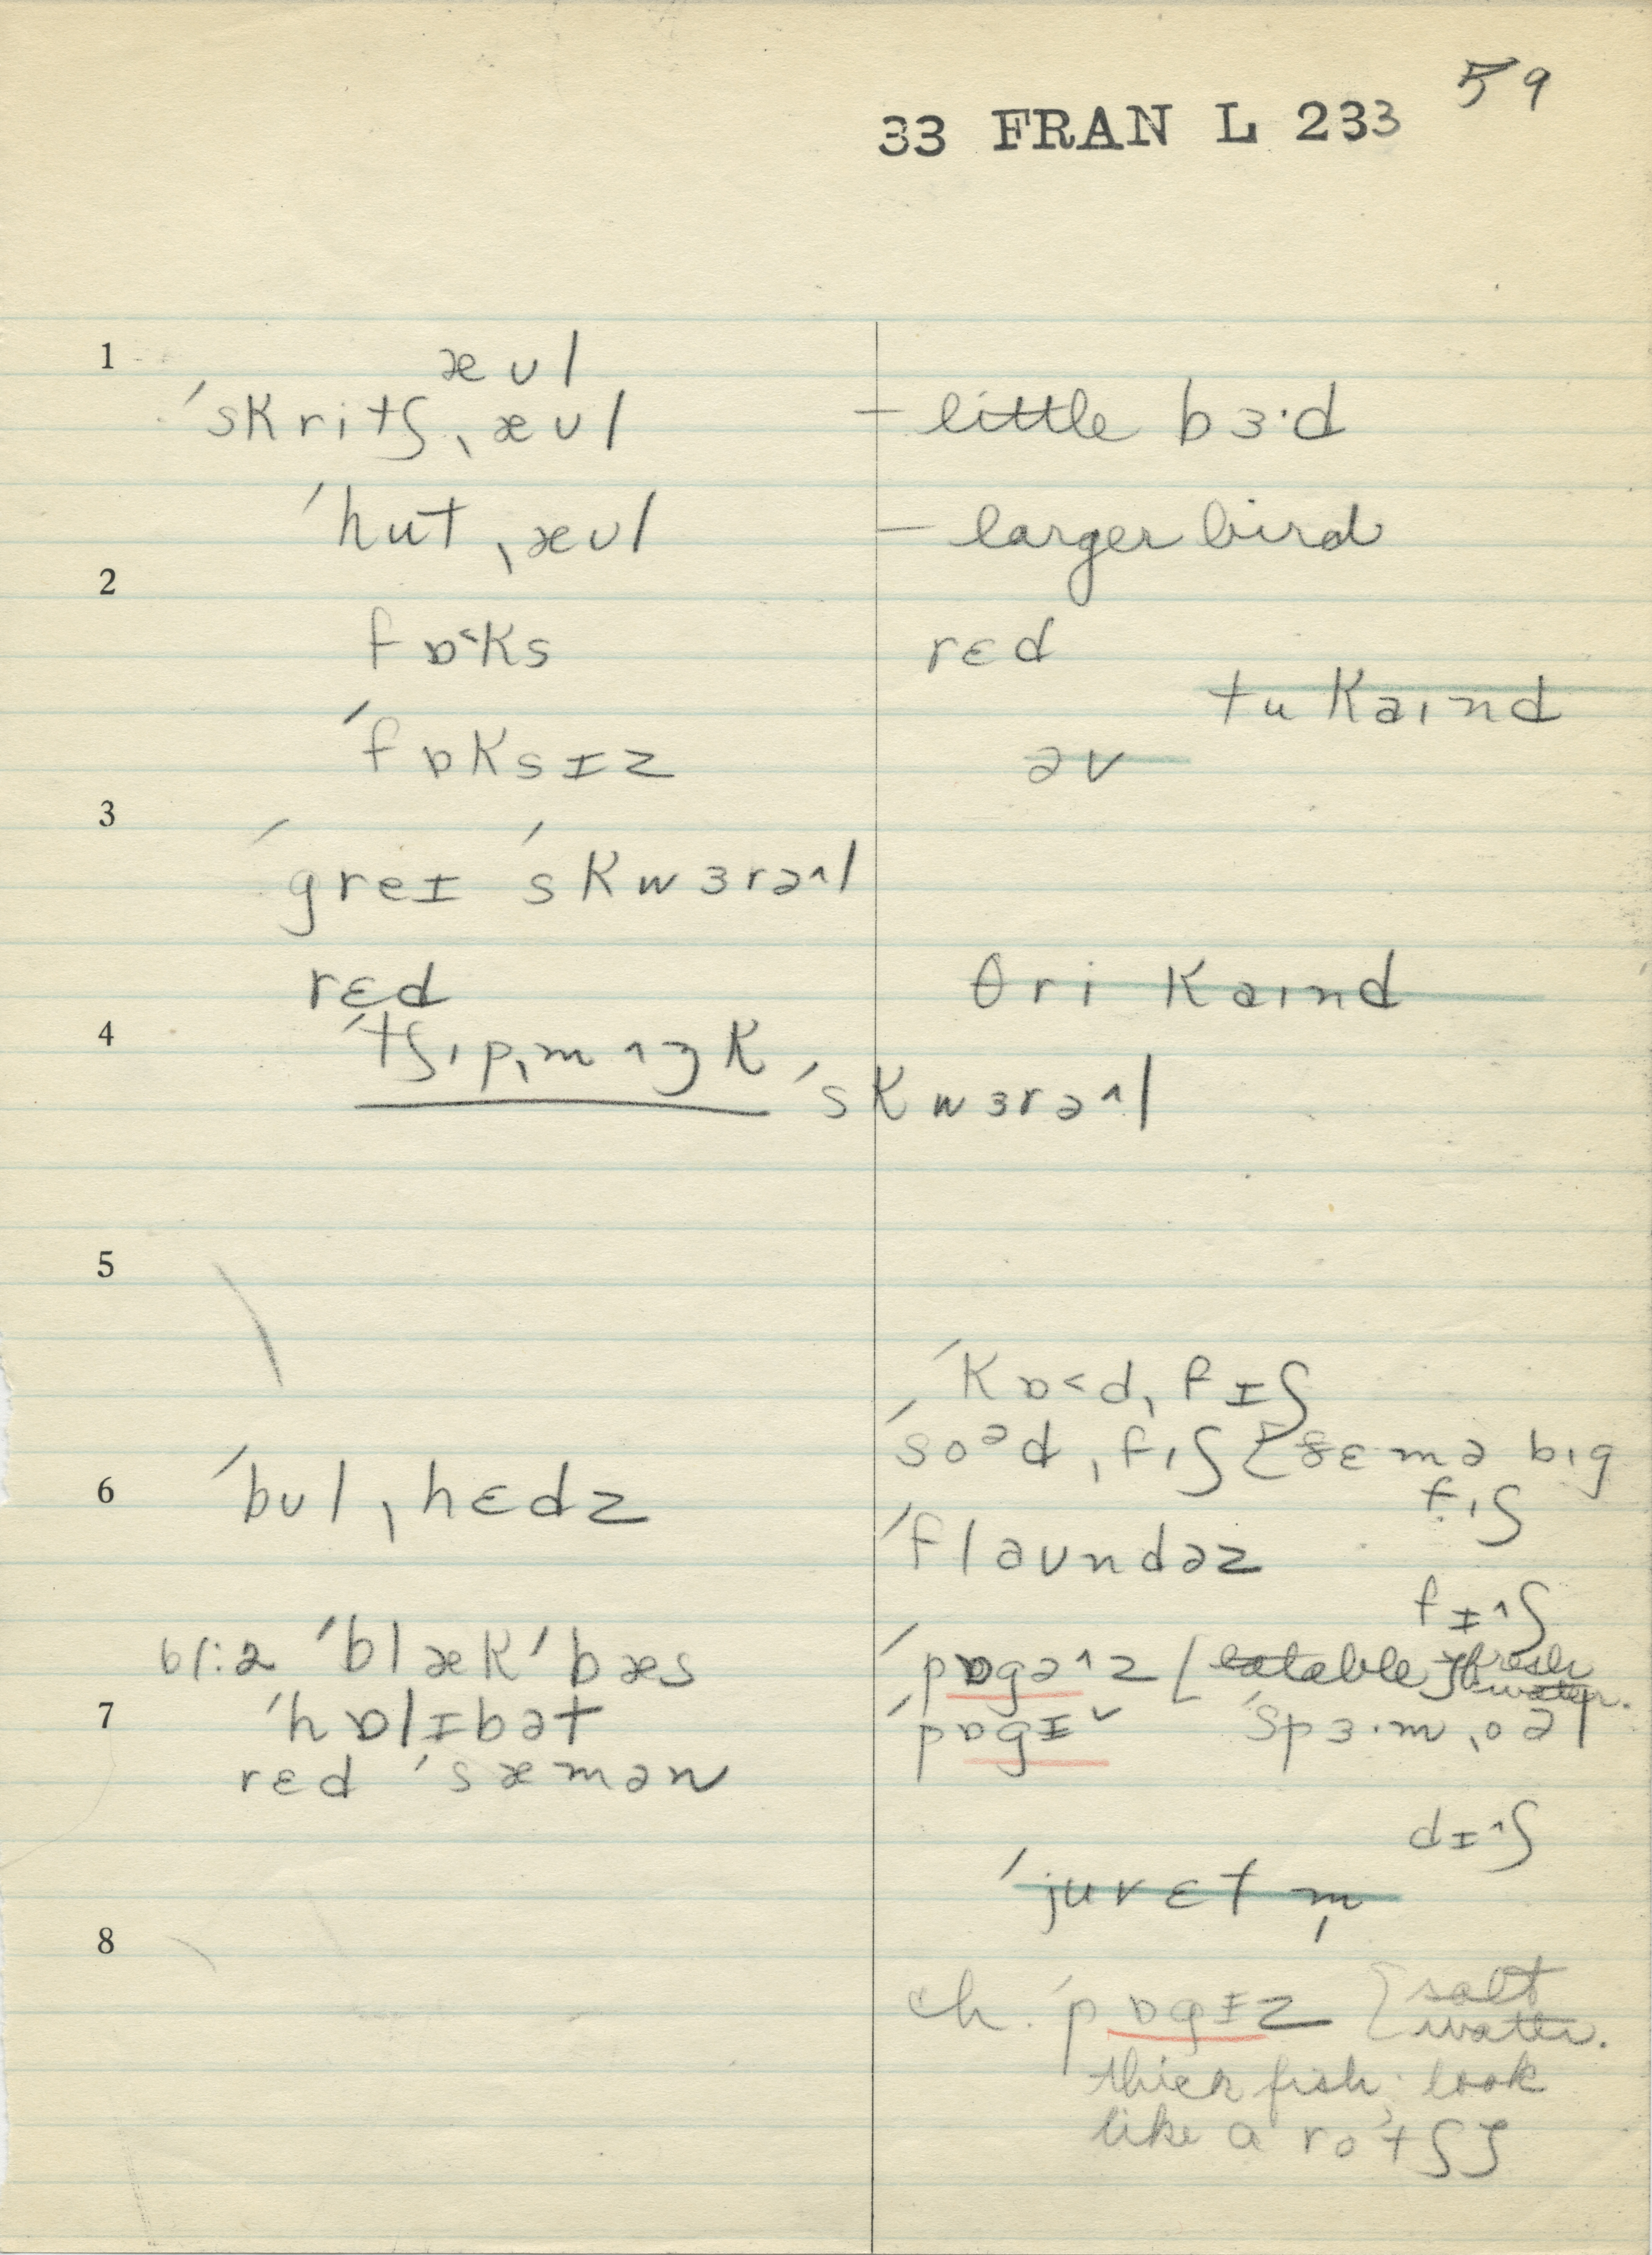 59
33 FRAN L 233
1
æʊl
ˈskritʃˌæʊl — little bɜ·d
ˈhutˌæʊl — larger bird
2
fɒ˂ks rɛd
tu kaɪnd
ˈfɒksɪz əv
3
ˈgreɪ ˈskwɜrə^l
rɛd θri kaɪnd
4
ˈtʃɪpˌmʌŋk ˈskwɜrə^l
5
ˈkɒ˂dˌfɪʃ
ˈsoᵊdˌfɪʃ [sɛmə bɪg
fɪʃ
6
ˈbʊlˌhɛdz
ˈflaʊndəz
fɪ^ʃ
bl:2 ˈblækˈbæs ˈpɒgə^z [eatable] fresh
water.
7
ˈhɒlɪbət ˈpɒgɪˇ ˈspɜ·mˌoəl
rɛd ˈsæmən
dɪ^ʃ
ˈjuvɛt m̩
8
ch. ˈpɒgɪz [salt
water.
thick fish; look
like a roˈtʃ]